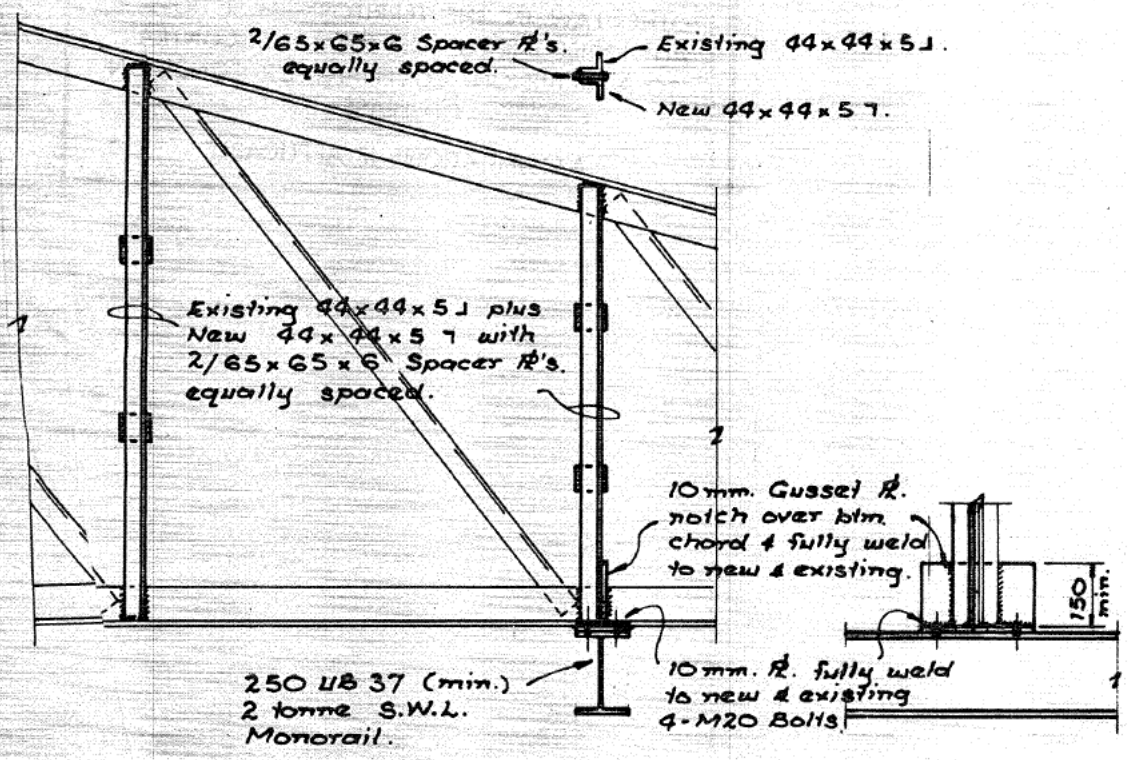 2/65x65x6 Spacer PL's.
equally spaced.
Existing 44x44x5 ⅃.
New 44x44x5 ㄱ.
Existing 44x44x5 ⅃ plus
New 44x44x5 ㄱ with
2/65x65x6 Spacer PL's.
equally spaced.
10mm. Gusset PL.
notch over btm.
chord & fully weld
to new & existing.
150
min.
250 UB 37 (min.)
2 tonne S.W.L.
Monorail.
10mm. PL. fully weld
to new & existing
4-M20 Bolts.